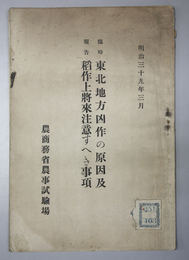 明治三十九年三月
臨時
報告
東北地方凶作の原因及
稻作上將來注意すへき事項
農商務省農事試驗場